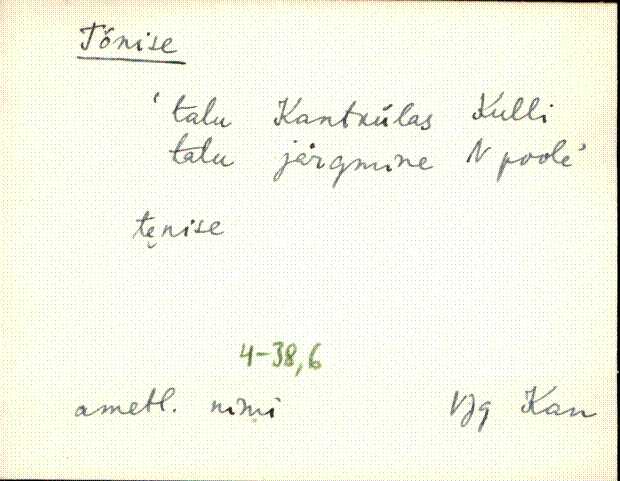 Tõnise
' talu Kantküläs Kulli
talu järgmine N poole'
tẹnise
4-38,6
ametl. nimi VJg Kan